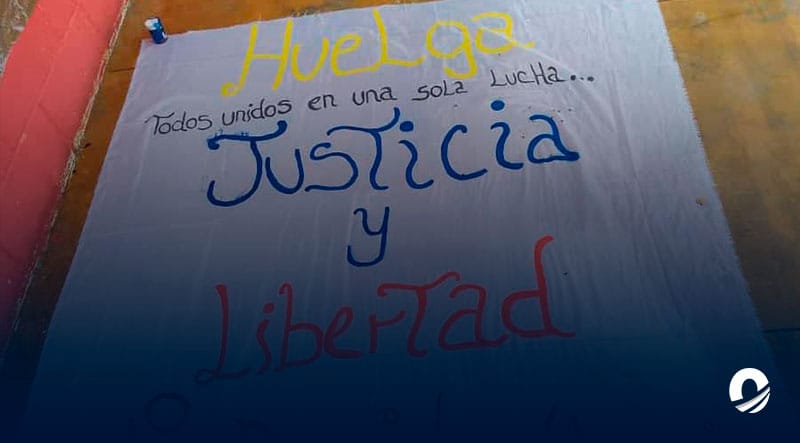 HueLga
Todos unidos en una sola LucHa...
JusTicia
y
LiberTad